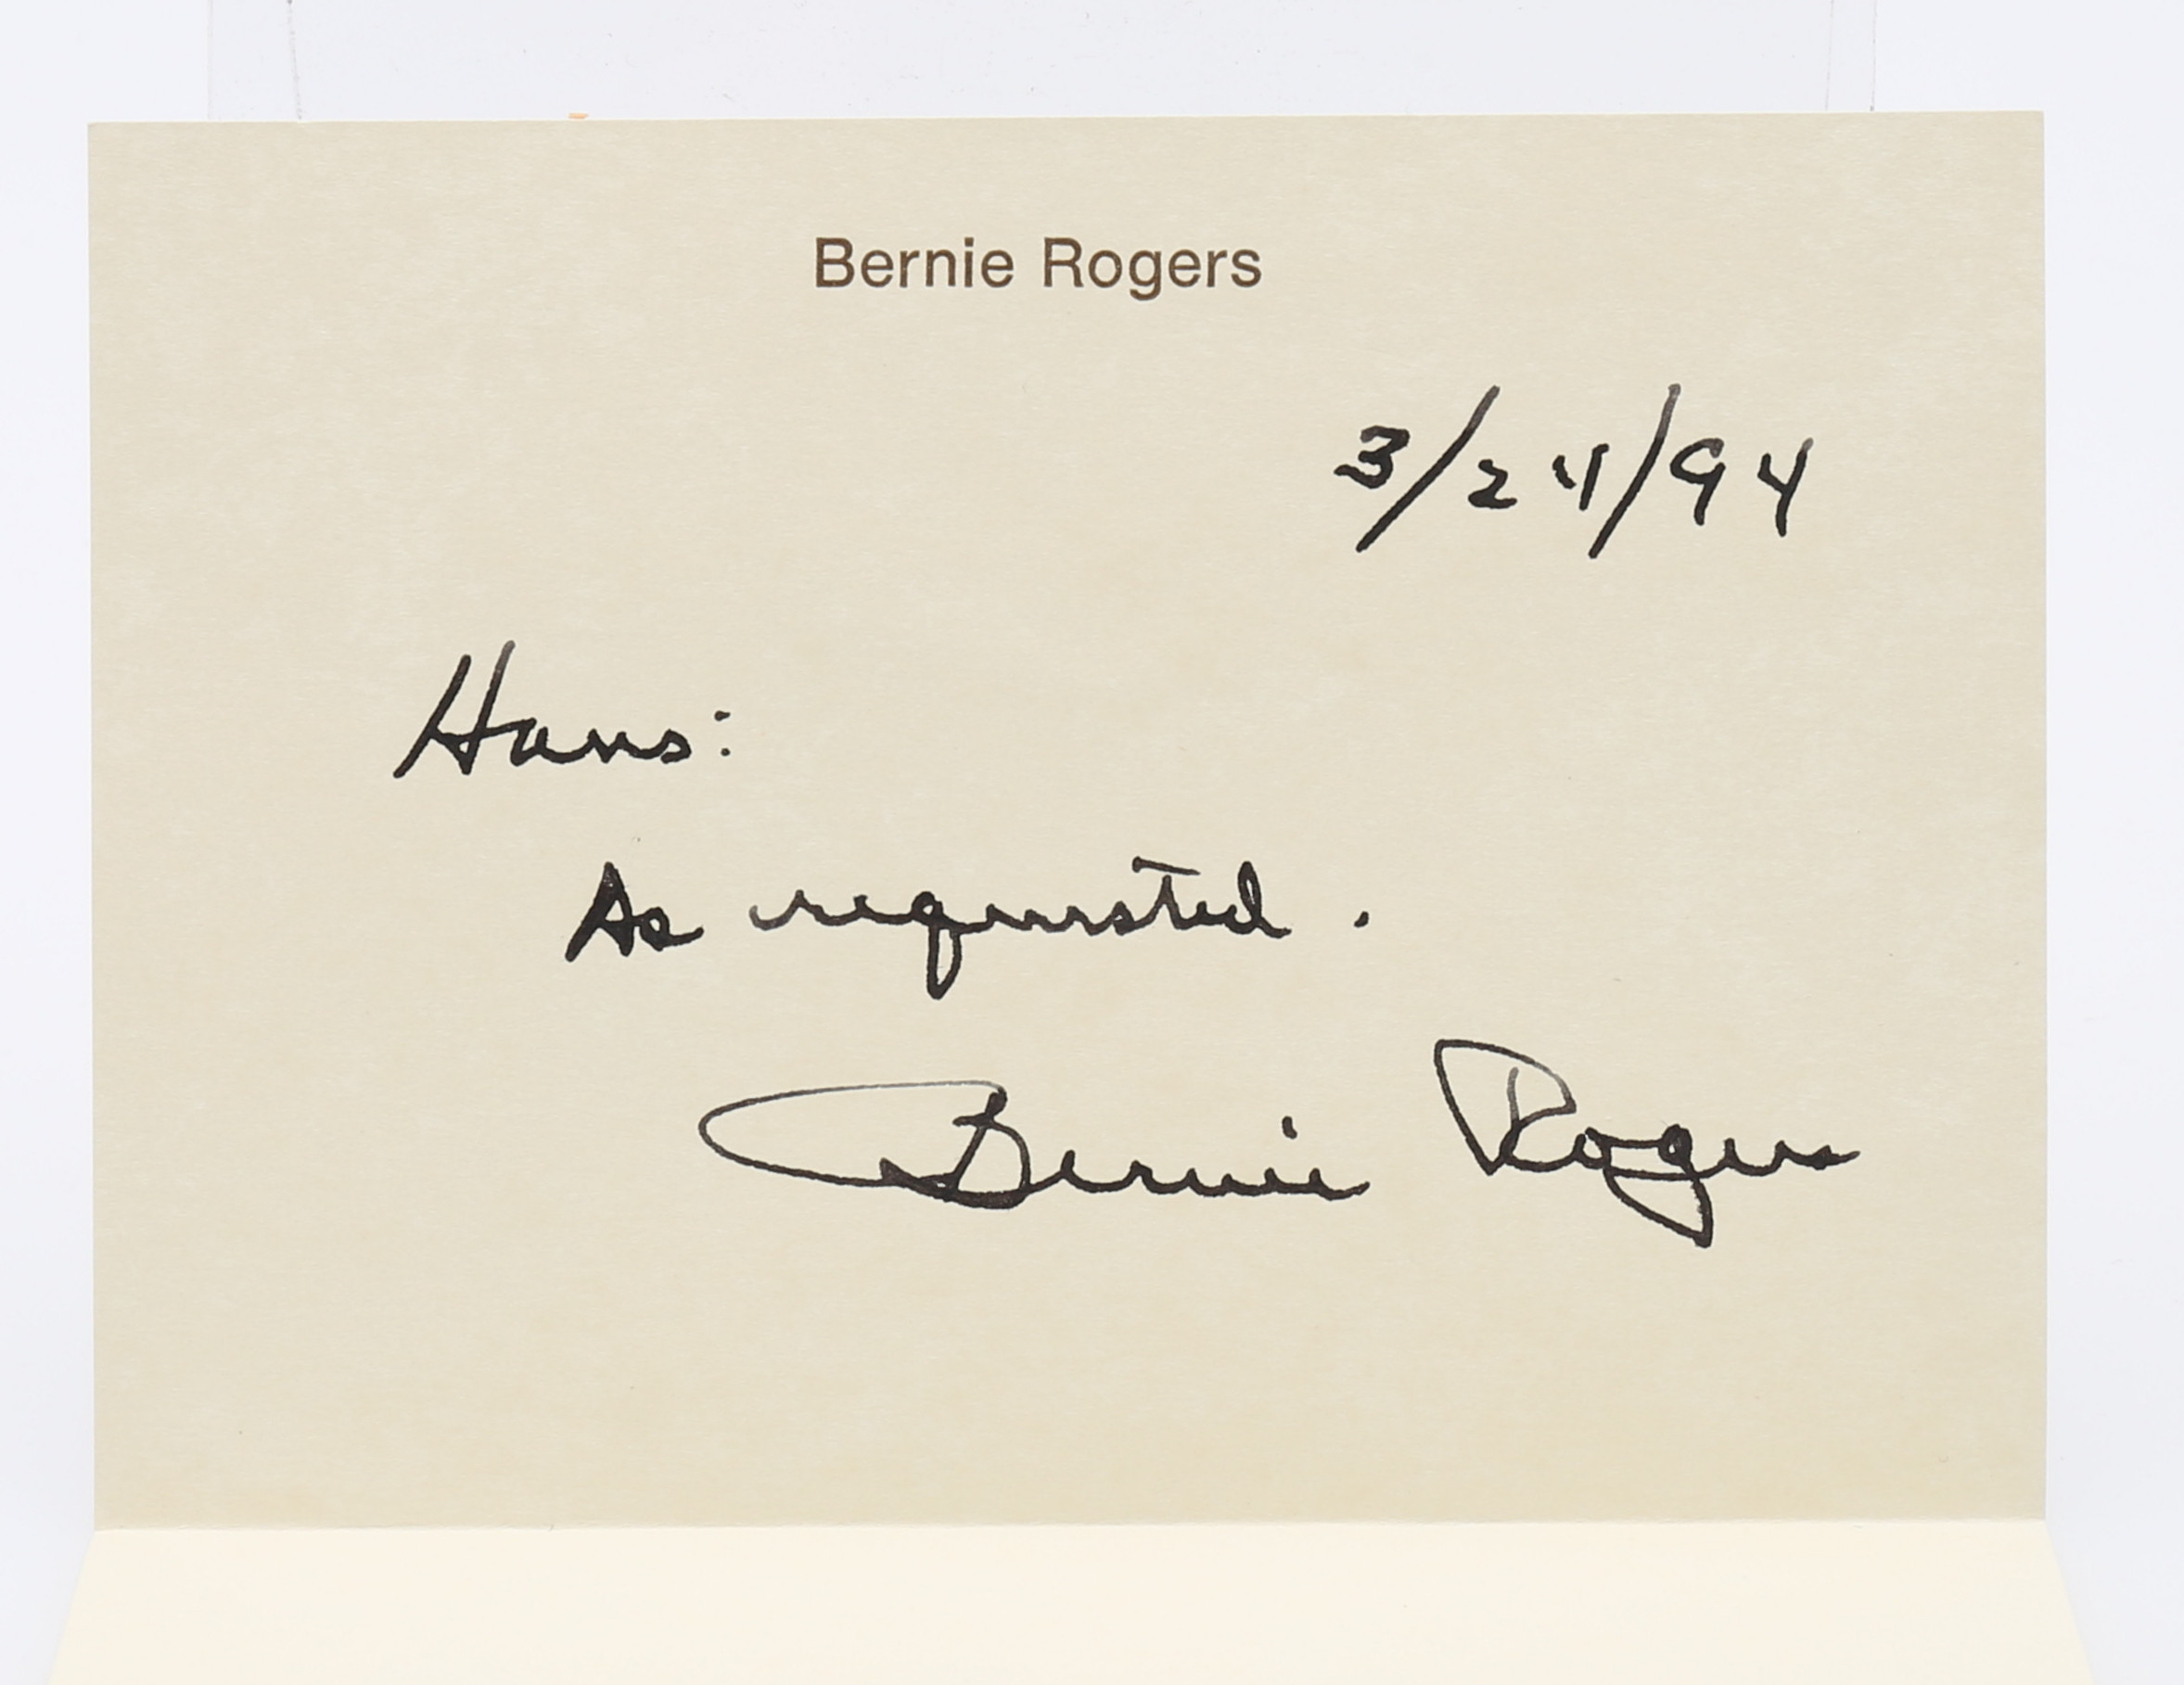 Bernie Rogers
3/24/94
Hans:
As requested.
Bernie Rogers